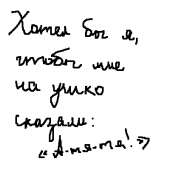 Хотел бы я,
чтобы мне
на ушко
сказали:
«А-тя-тя!»